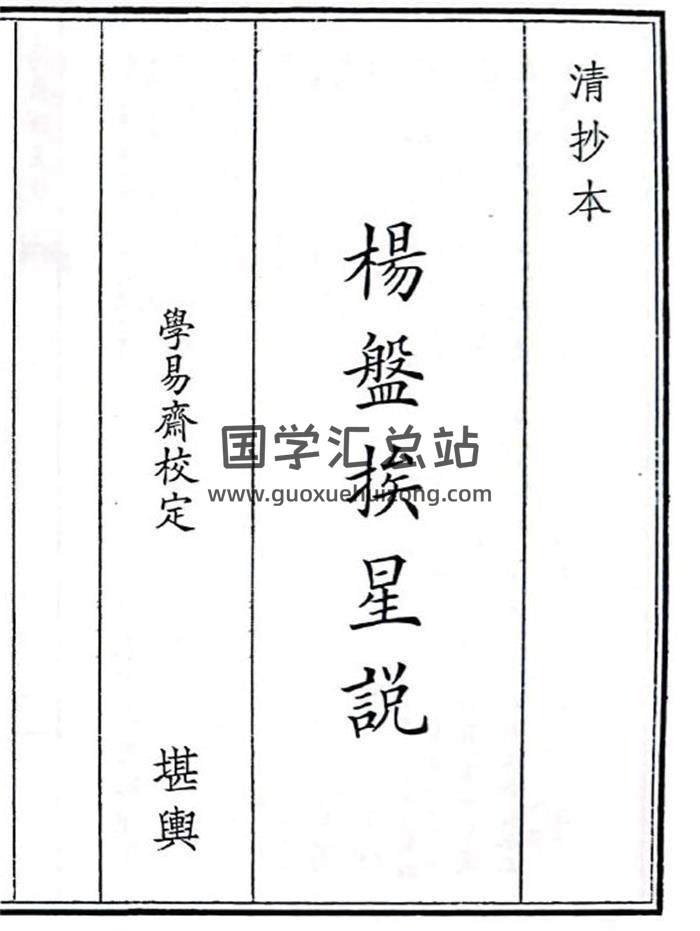 清抄本
楊盤挨星説
學易齋校定
堪輿
国学汇总站
www.guoxuehuizong.com